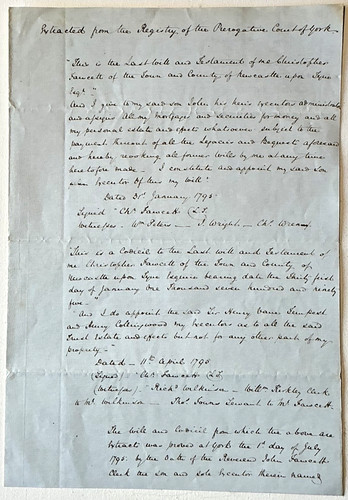 Extracted from the Registry of the Prerogative Court of York
"This is the Last Will and Testament of me Christopher
Fawcett of the Town and County of Newcastle upon Tyne
Esqr."
And I give to my said son John his heirs executors administrators
and assigns all my Mortgages and securities for money and all
my personal estate and effects whatsoever subject to the
payment thereout of all the Legacies and Bequests aforesaid
and hereby revoking all former Wills by me at any time
heretofore made I constitute and appoint my said Son
Executor of this my Will"
Dated 31st January 1795
Signed "Chr. Fawcett (L.S.
Witnesses - Wm Peters - J. Wright - Chr.
"This is a Codicil to the Last Will and Testament of
me Christopher Fawcett of the Town and County of
Newcastle upon Tyne Esquire bearing date the thirty first
day of January One Thousand seven hundred and ninety
five -"
"And I do appoint the said Sir Henry Vane Tempest
and Henry Collingwood my Executors as to all the said
Trust Estate and effects but not for any other part of my
property -
Dated - 11th April 1795
(Signed) "Chr. Fawcett (L.S.
(Witnesses) "Richd Wilkinson - Willm Kirkley Clerk
to Mr. Wilkinson - Thos. Servant to Mr Fawcett
The Will and Codicil from which the above are
Extracts was proved at York the 1st day of July
1795 by the Oath of the Reverend John Fawcett
Clerk the Son and sole Executor therein named